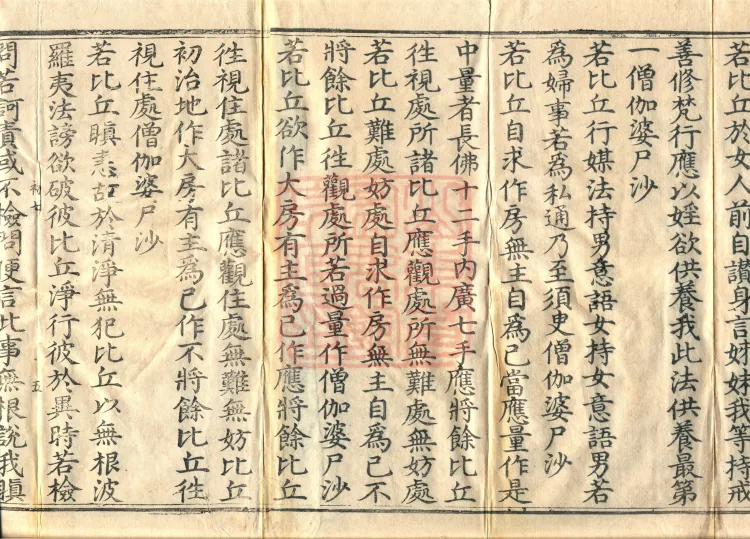 若比丘於女人前自讃身言姊妹我等持戒
善修梵行應以婬欲供養我此法供養最第
一僧伽婆尸沙
若比丘行媒法持男意語女持女意語男若
為婦事若為私通乃至須臾僧伽婆尸沙
若比丘自求作房無主自為己當應量作是
中量者長佛十二手內廣七手應將餘比丘
徃視處所諸比丘應觀處所無難處無妨處
若比丘難處妨處自求作房無主自為己不
將餘比丘徃觀處所若過量作僧伽婆尸沙
若比丘欲作大房有主為己作應將餘比丘
徃視住處諸比丘應觀住處無難無妨比丘
初治地作大房有主為己作不將餘比丘徃
視住處僧伽婆尸沙
若比丘瞋恚故於清淨無犯比丘以無根波
羅夷法謗欲破彼比丘淨行彼於異時若檢
五
問若訶責或不檢問便言此事無根說我瞋